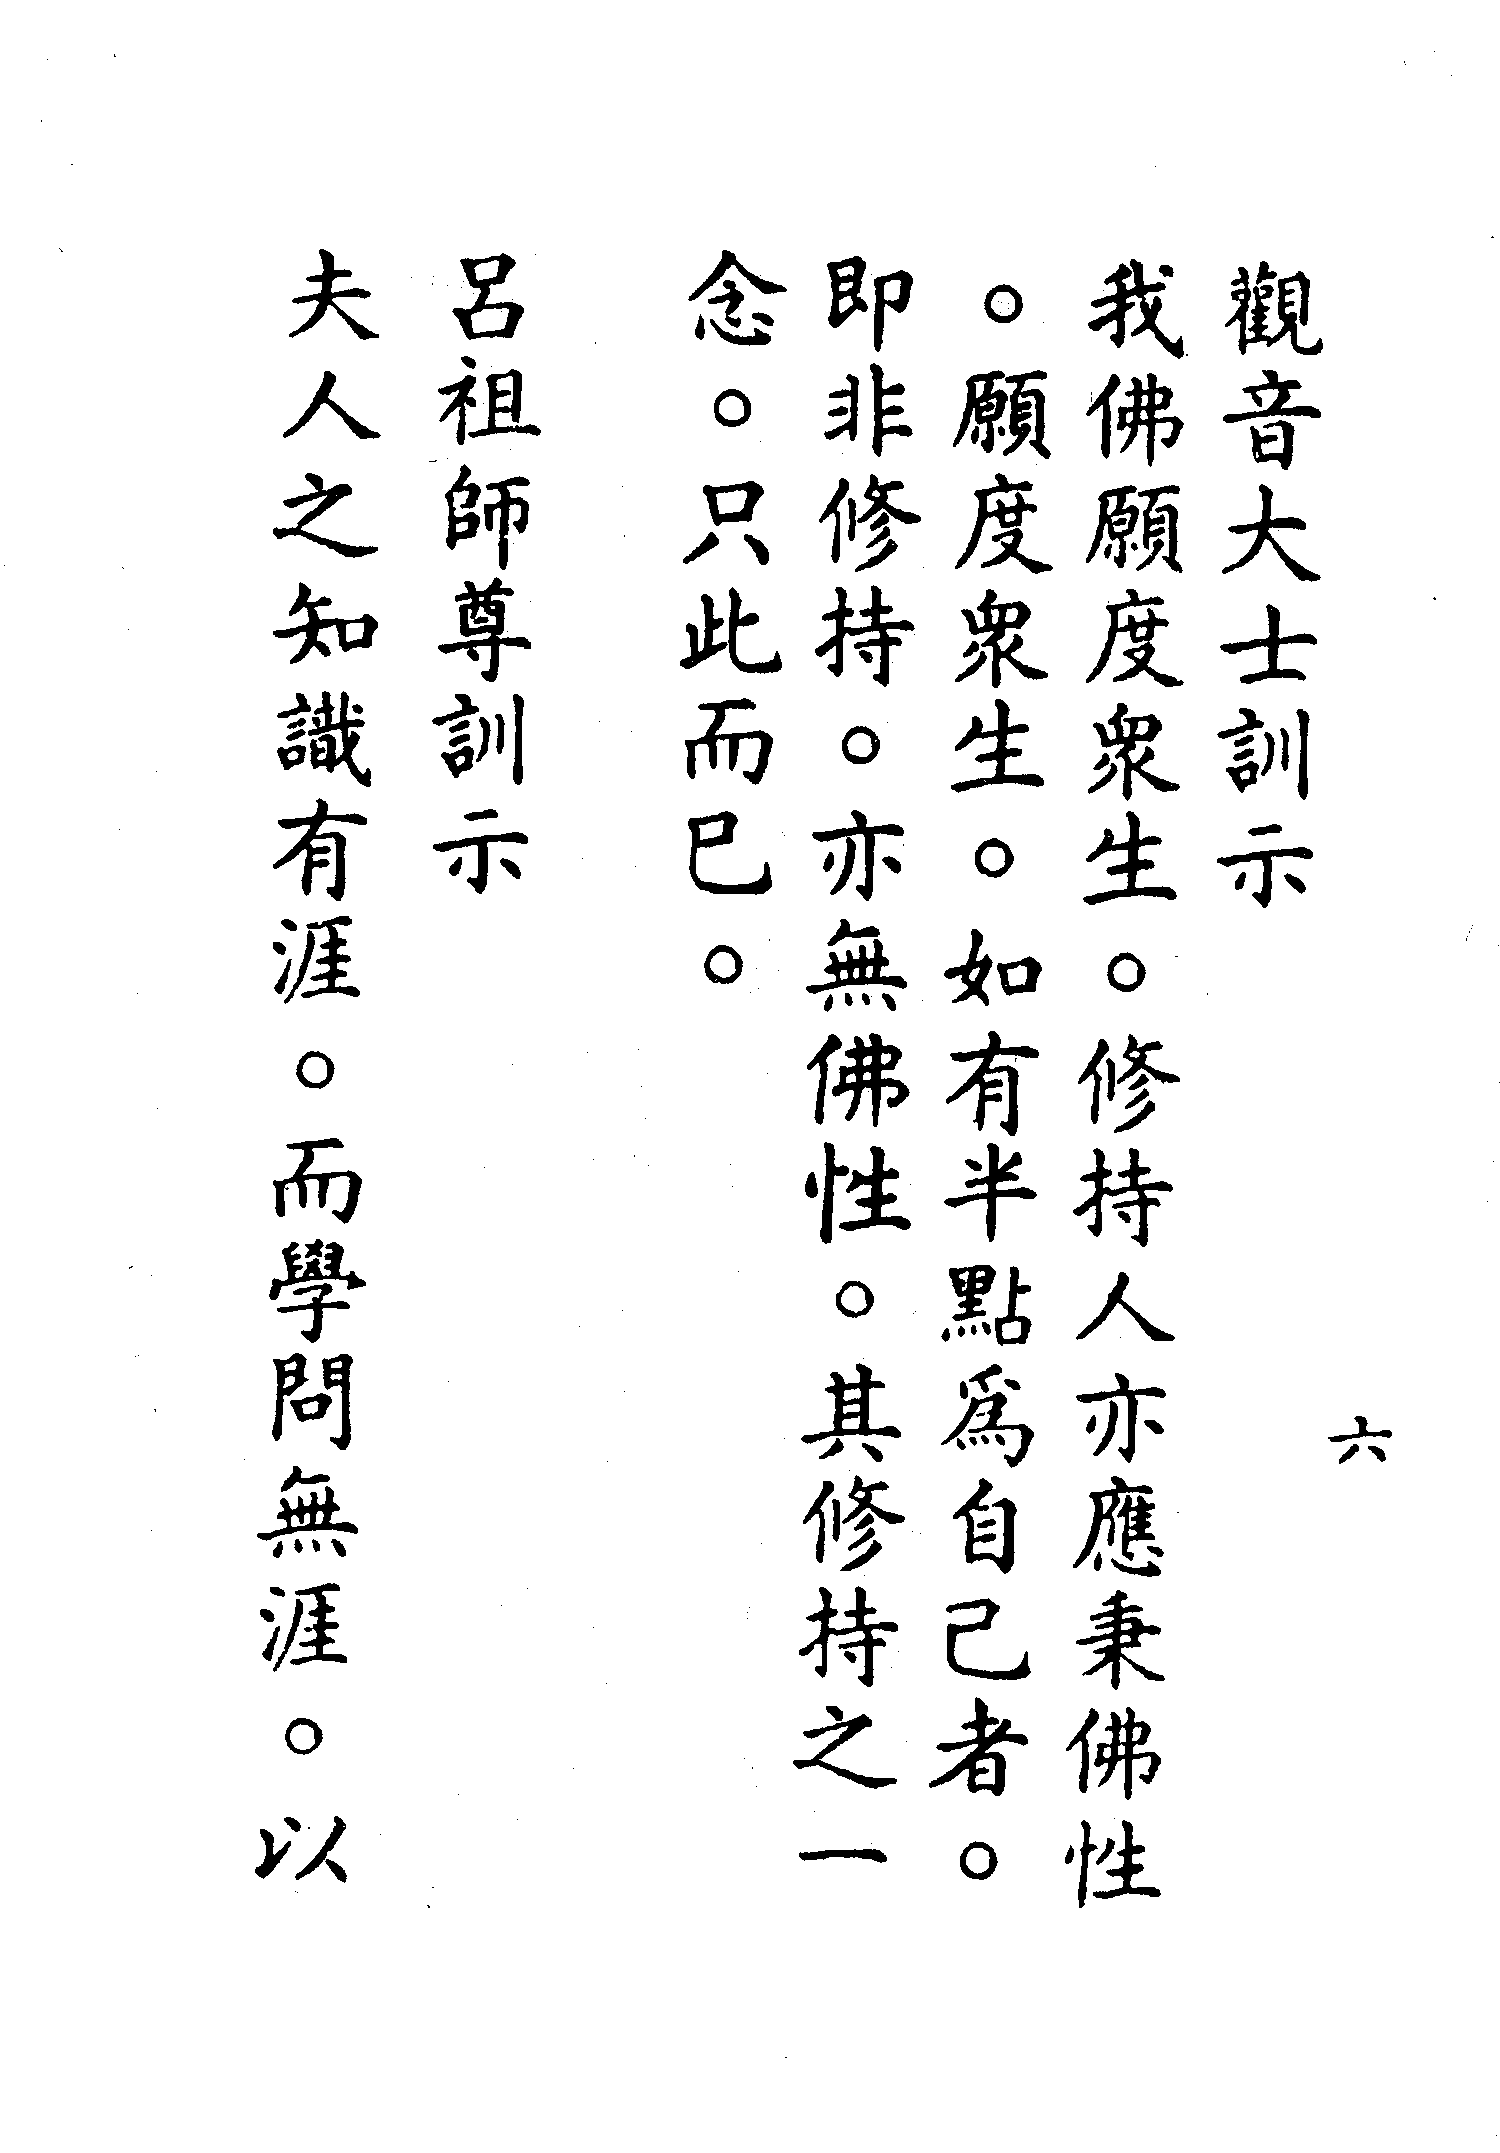 六
觀音大士訓示
我佛願度眾生。修持人亦應秉佛性
。願度眾生。如有半點為自己者。
即非修持。亦無佛性。其修持之一
念。只此而已。
呂祖師尊訓示
夫人之知識有涯。而學問無涯。以